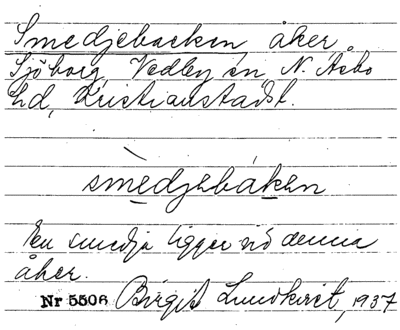 Smedjebacken åker
Sjöborg, Vedby sn N. Åsbo
hd, Kristianstadsl.
smèdjebáken
En smedja ligger vid denna
åker.
Nr 5506 Birgit Lundkvist, 1937